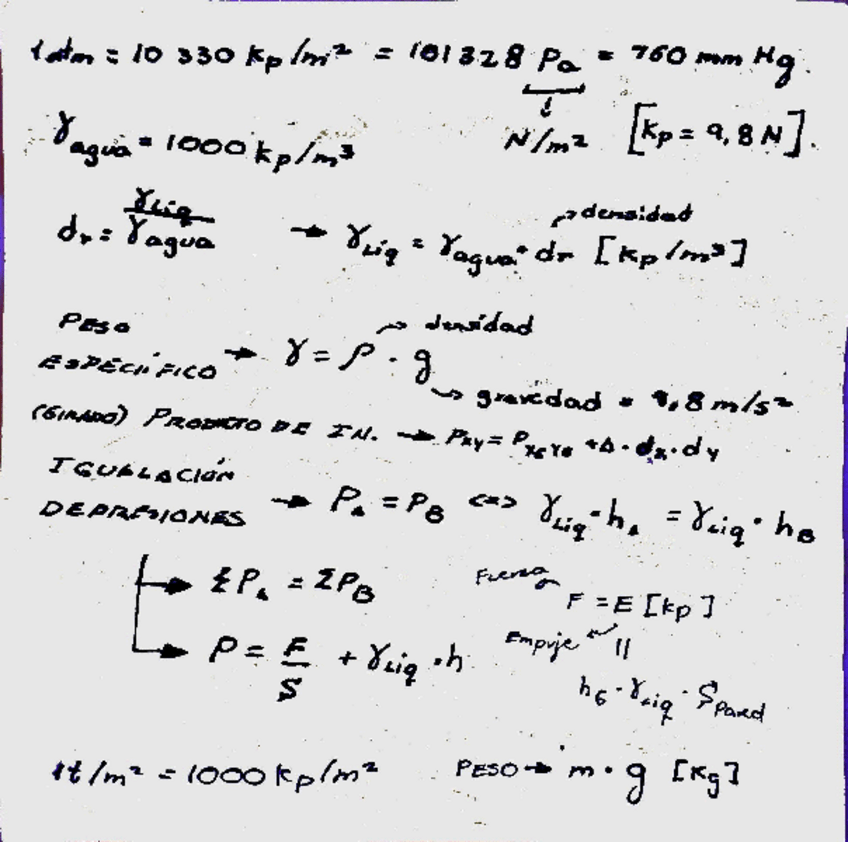 1 atm = 10 330 kp/m² = 101328 Pa = 760 mm Hg.
N/m² [kp = 9,8 N].
γagua = 1000 kp/m³
dr = γliq / γagua → γliq = γagua · dr [kp/m³]
densidad
PESO ESPECÍFICO → γ = ρ · g
densidad
gravedad = 9,8 m/s²
(GIRADO) PRODUCTO DE IN. → Pxy = PxGyG + A · dx · dy
IGUALACIÓN DE PRESIONES → PA = PB <=> γliq · hA = γliq · hB
ΣPA = ΣPB
P = F/S + γliq · h
Fuerza
F = E [kp]
Empuje
hG · γliq · Spared
1t/m² = 1000 kp/m²
PESO → m · g [Kg]